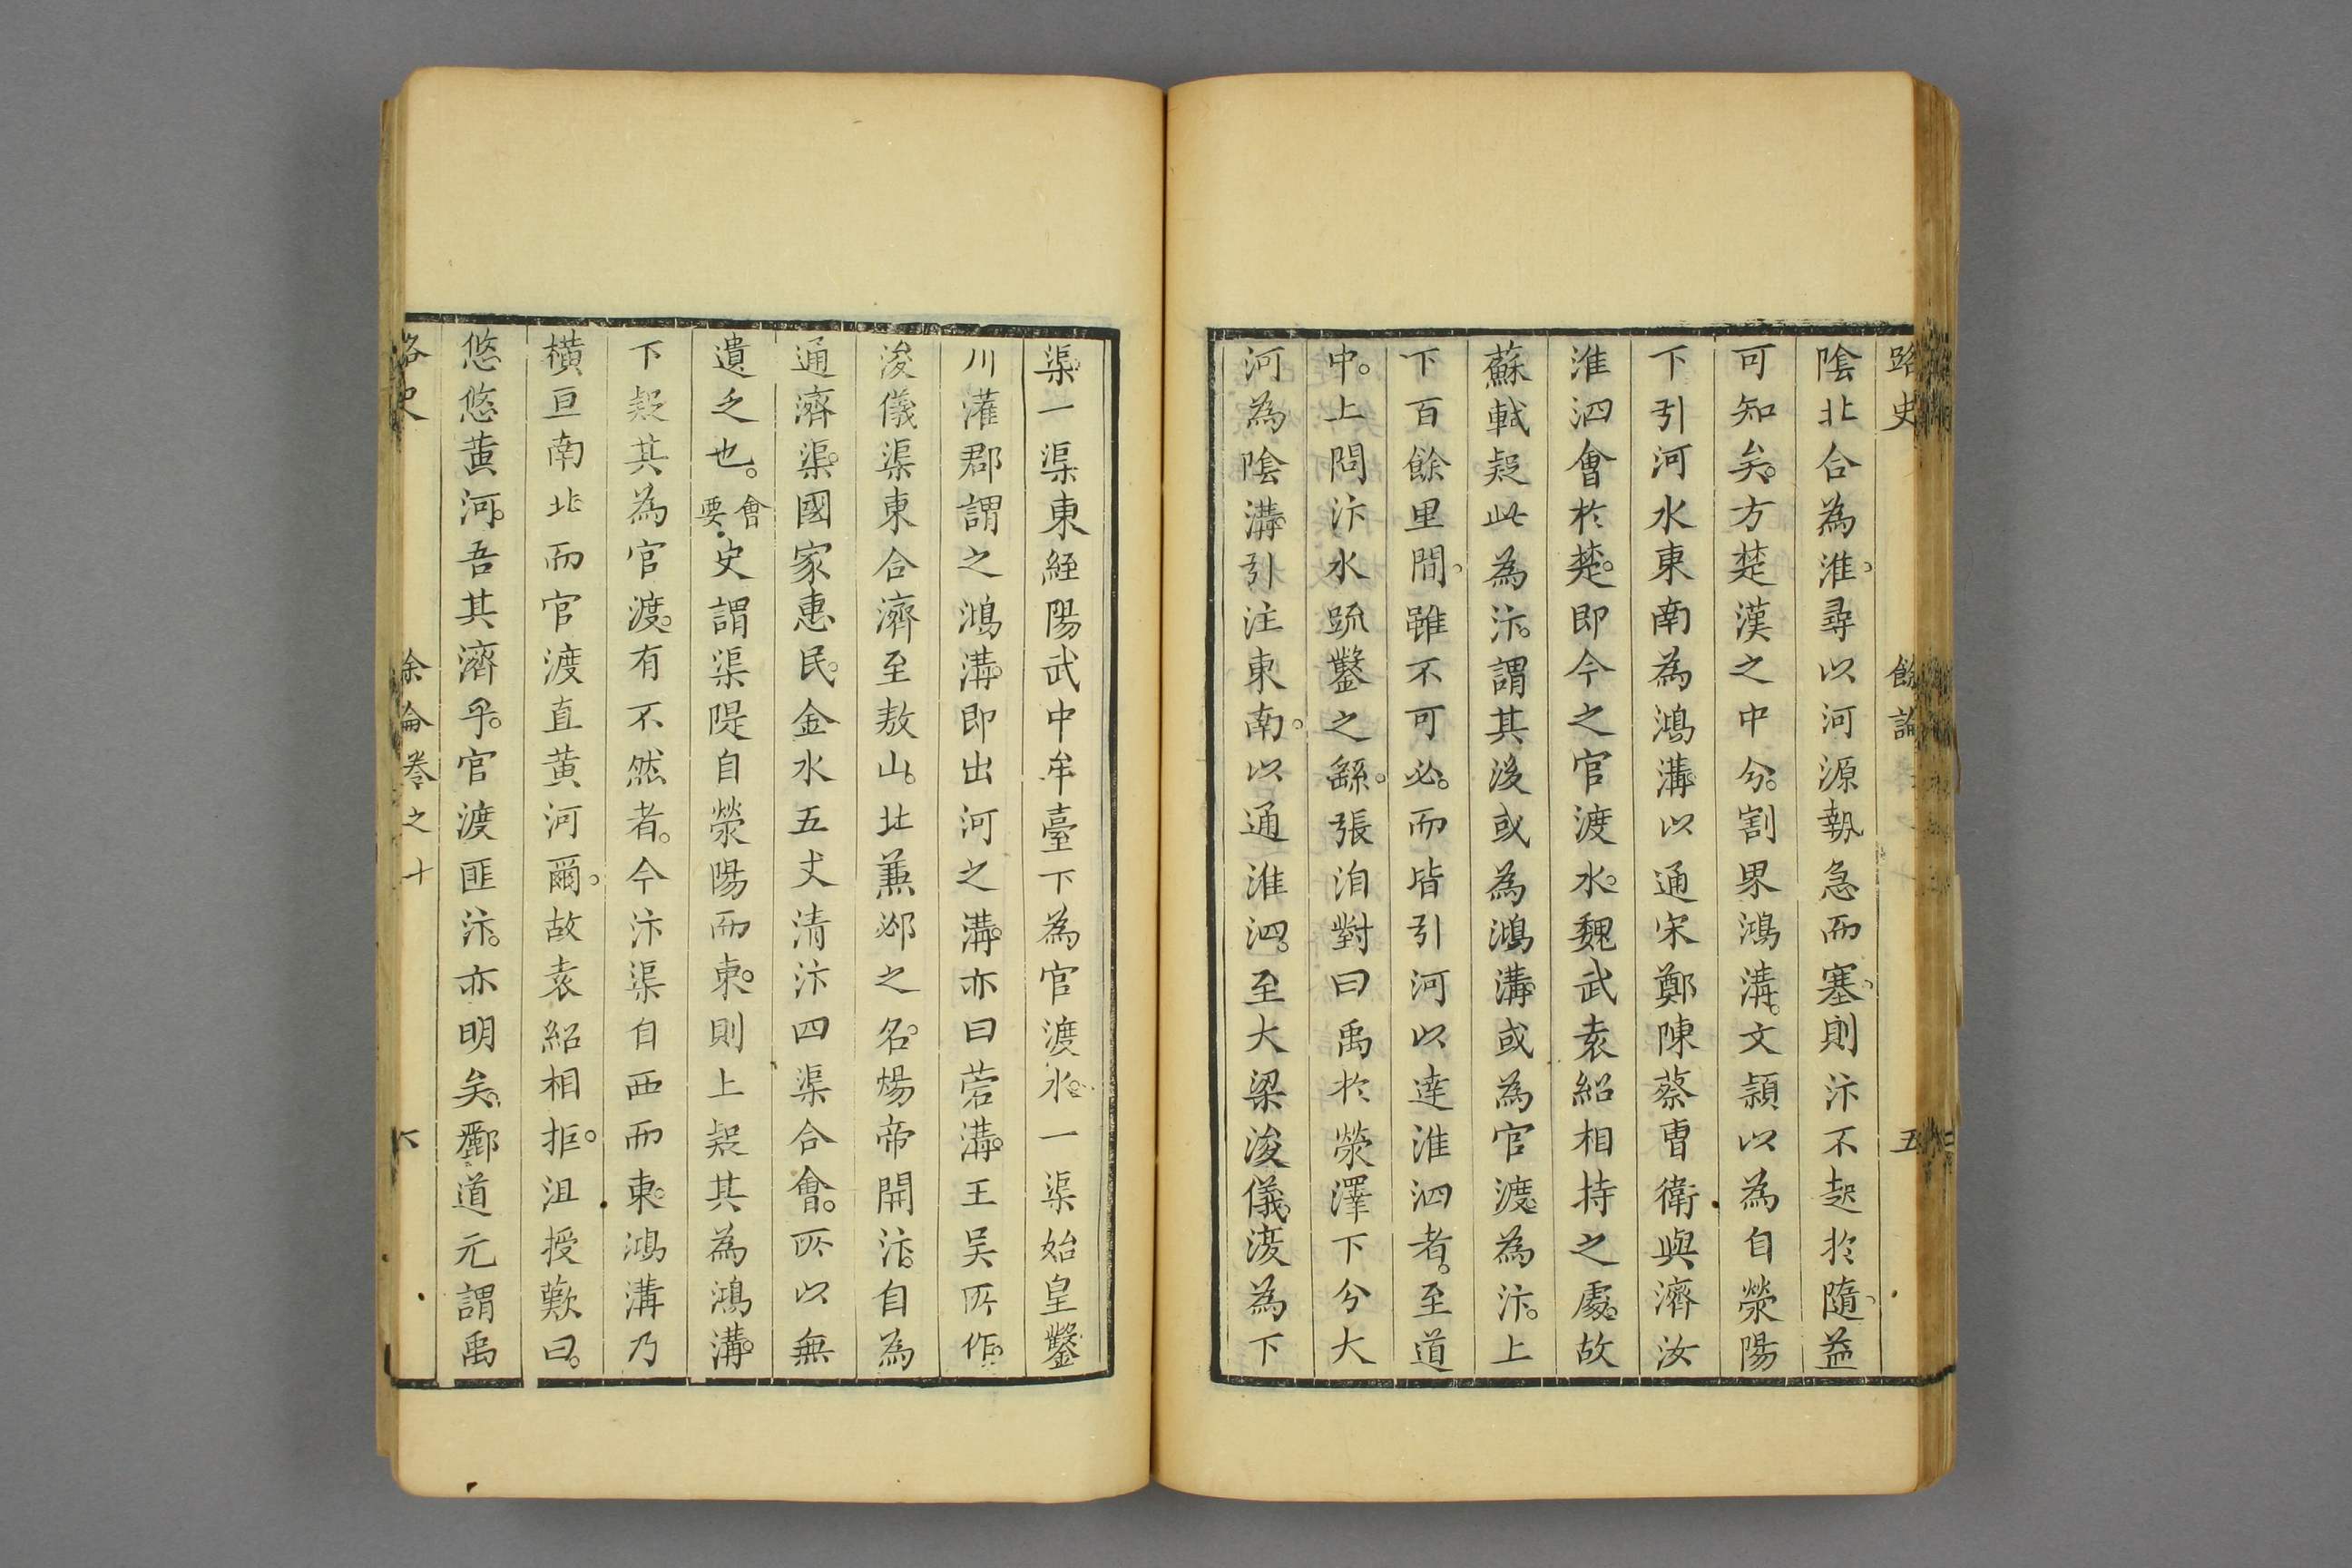 路史　餘論　五
陰北合為淮尋以河源執急而塞則汴不起於隨益
可知矣方楚漢之中分割界鴻溝文頴以為自滎陽
下引河水東南為鴻溝以通宋鄭陳蔡曺衛與濟汝
淮泗會於楚即今之官渡水魏武袁紹相持之處故
蘇軾疑此為汴謂其後或為鴻溝或為官渡為汴上
下百餘里間雖不可必而皆引河以達淮泗者至道
中上問汴水疏鑿之繇張洎對曰禹於滎澤下分大
河為陰溝引注東南以通淮泗至大梁浚儀渡為下
渠一渠東經陽武中牟臺下為官渡水一渠始皇鑿
川灌郡謂之鴻溝即出河之溝亦曰菪溝王吴所作
浚儀渠東合濟至敖山北兼邲之名煬帝開汴自為
通濟渠國家惠民金水五丈清汴四渠合會所以無
遺乏也會要史謂渠隄自滎陽而東則上疑其為鴻溝
下疑其為官渡有不然者今汴渠自西而東鴻溝乃
橫亘南北而官渡直黄河爾故袁紹相拒沮授歎曰
悠悠黄河吾其濟乎官渡匪汴亦明矣酈道元謂禹
路史　余侖卷之十　六